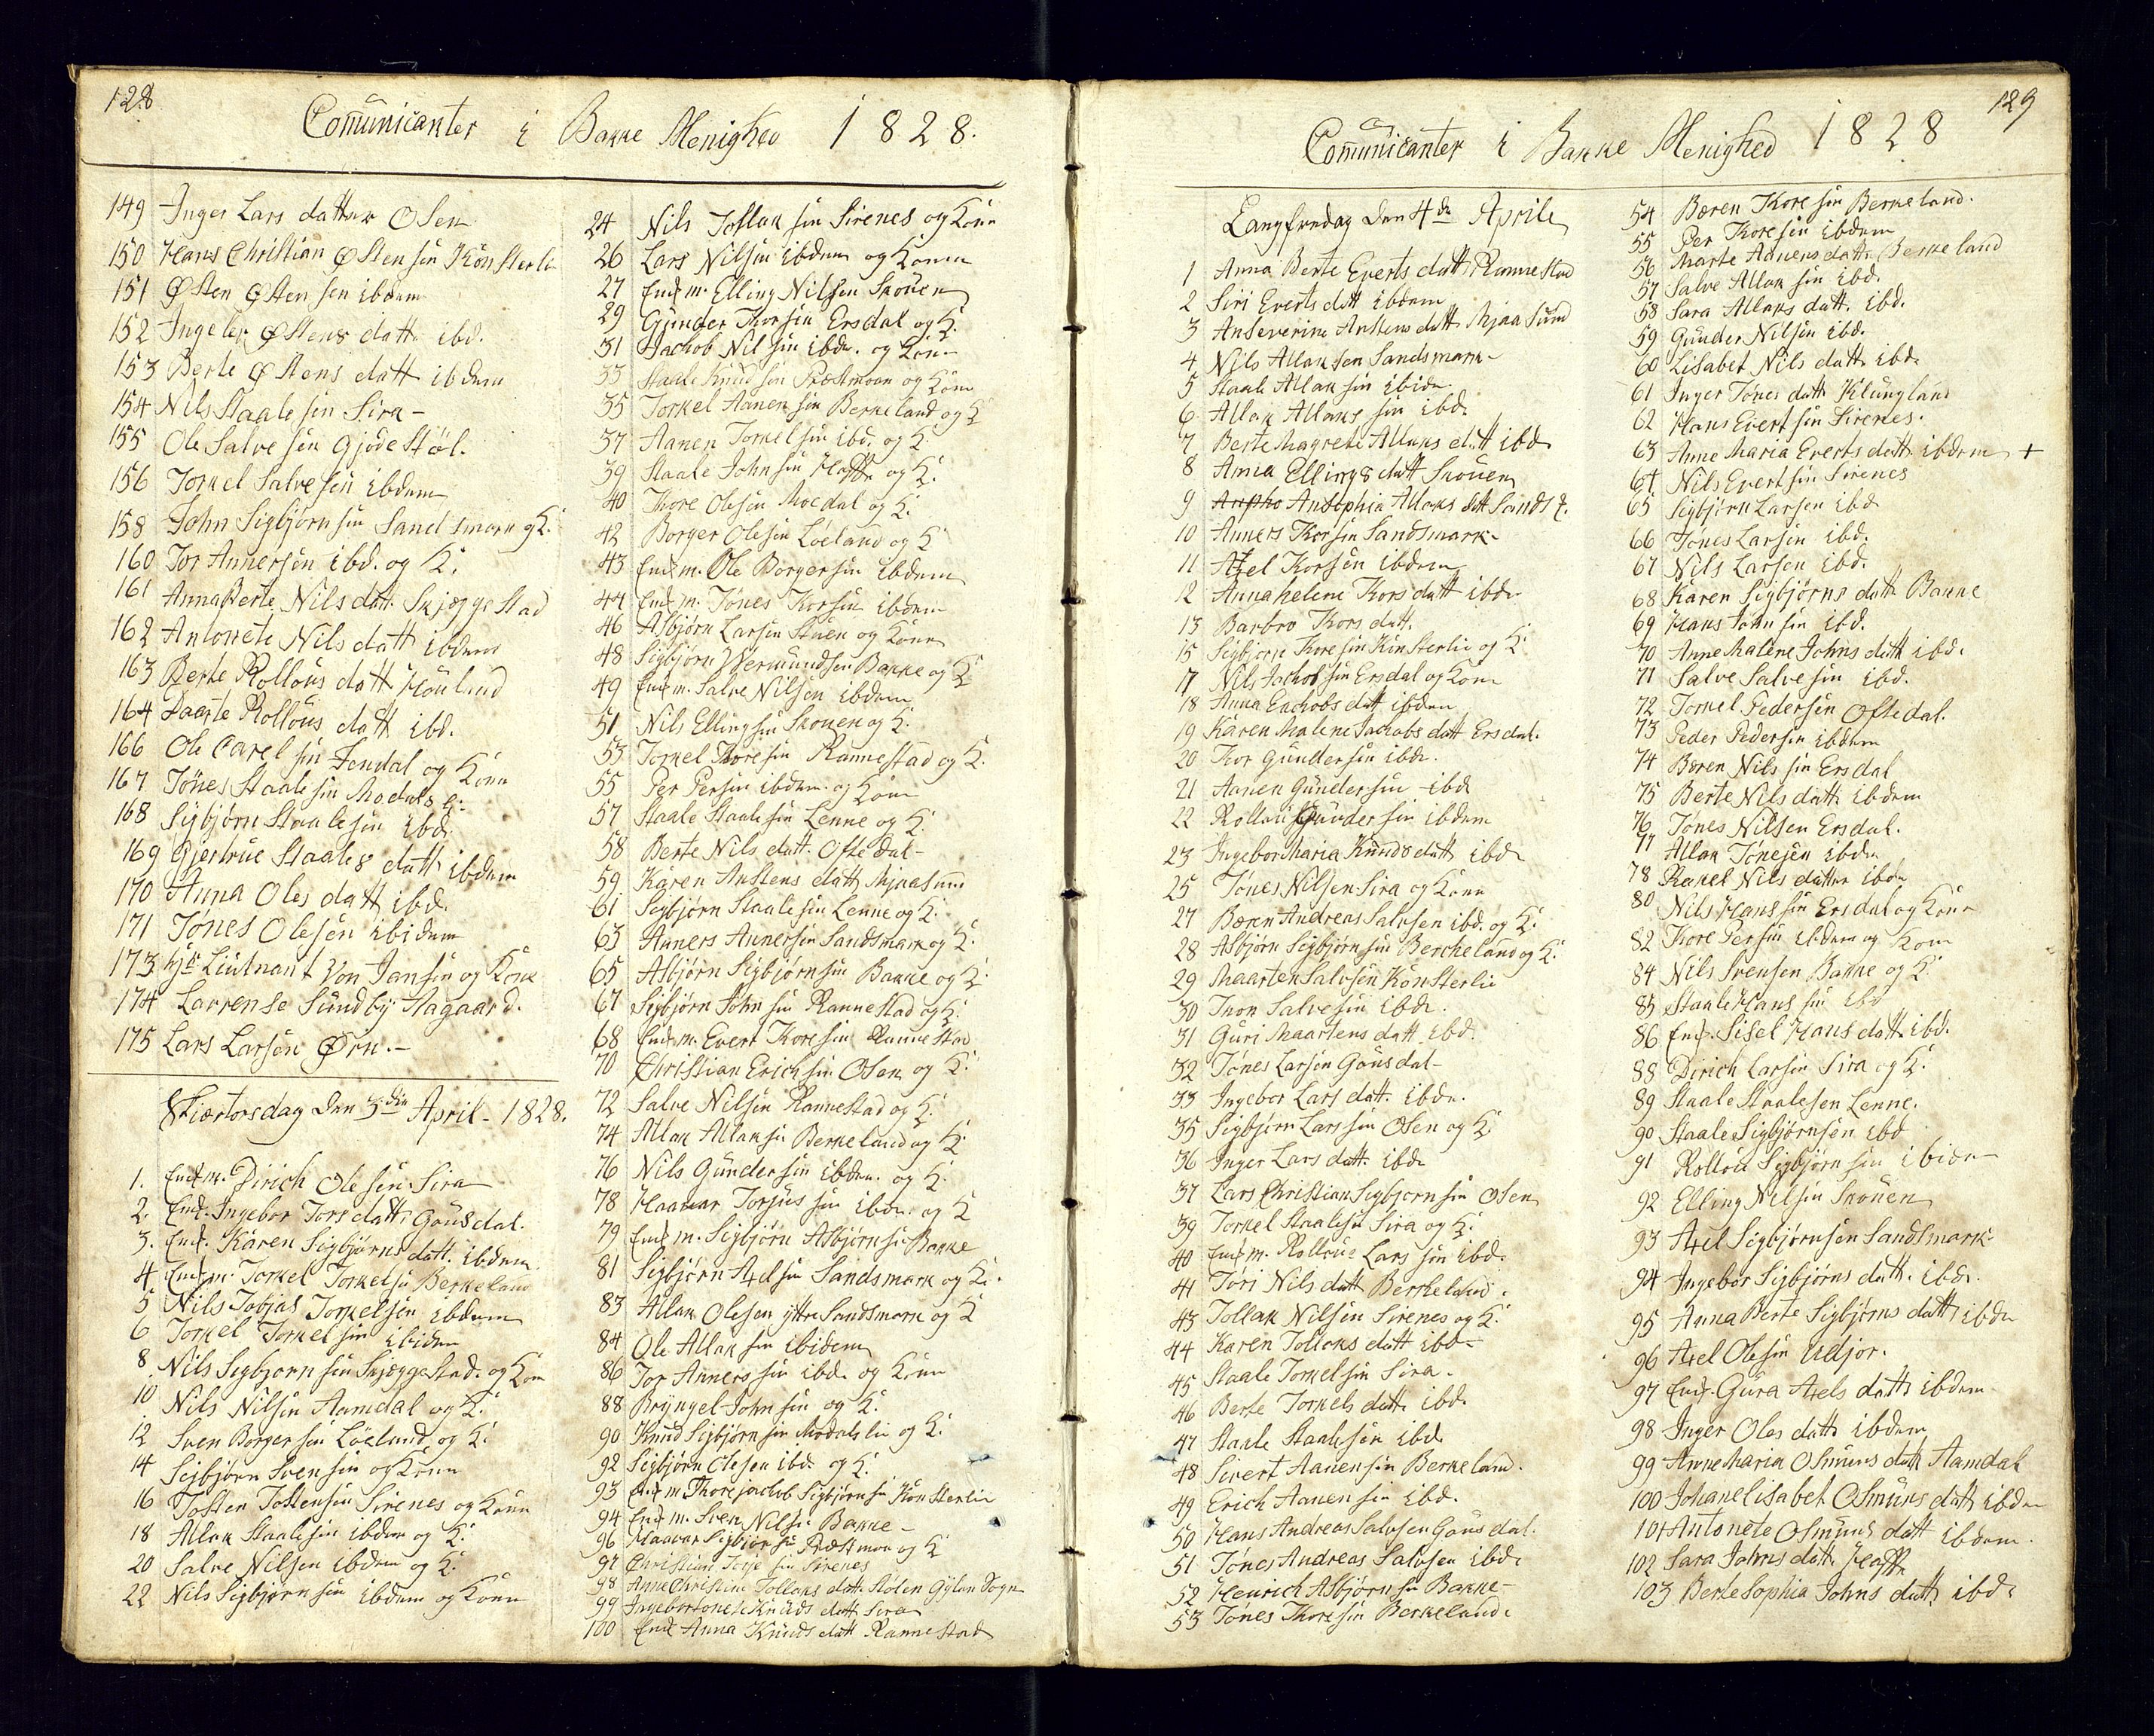 128
Comunicanter i Bakke Menighed 1828.
149 Inger Lars datter Osen
150 Hans Christian Østensen Könsterli
151 Østen Østensen ibdem
152 Ingeler Østens datt. ibd.
153 Berte Østens datt ibdem
154 Nils Staalesen Sira -
155 Ole Salvesen Gjödestöl.
156 Torkel Salvesen ibdem
158 John Sigbjörnsen Sandsmark og K:
160 Tor Annersen ibd. og K:
161 Anna Berte Nilsdatt. Skjæggestad
162 Antonete Nils datt ibdem
163 Berte Rollous datt Houland
164 Daarte Rollous datt ibd.
166 Ole Carelsen Fendal og Kone
167 Tönes Staalesen Modals E:
168 Sigbjörn Staalesen ibd.
169 Gjertrue Staales datt ibdem
170 Anna Oles datt ibd.
171 Tönes Olesen ibidem
173 Hr Liutnant Von Jansen og Kone
174 Lavrense Sundby Aagaard.
175 Lars Larsen Ørn.-
Skiærtorsdag den 3die April - 1828.
1. Enkm. Dirich Olesen Sira
2. Enk. Ingebor Torsdatt Gousdal.
3. Enk. Karen Sigbjörns datt. ibdem
4 Enkm. Torkel Torkelsen Berkeland
5 Nils Tobias Torkelsen ibdem
6 Torkel Torkelsen ibidem
8 Nils Sigbjornsen Skjæggestad. og Kone
10 Nils Nilsen Aamdal og K:
12 Sven Borgersen Löeland og K:
14 Sigbjörn Svensen og Kone
16 Tosten Tostensen Sirenes og Kone
18 Allak Staalesen ibdem og K:
20 Salve Nilsen ibdem og K:
22 Nils Sigbjörnsen ibdem og Kone
24 Nils Tollaksen Sirenes og Kone
26 Lars Nilsen ibdem og Konen
27 Enkm. Elling Nilsen Skouen
29 Gunder Thorsen Ersdal og K.
31 Jachob Nilsen ibd. og Kone
33 Staale Knudsen Præstmoen og Kone
35 Torkel Aanensen Berkeland og K
37 Aanen Torkelsen ibd. og K:
39 Staale Johnsen og K:
40 Thore Olesen Moedal og K:
42 Borger Olesen Löeland og K:
43 Enkm. Ole Borgersen ibdem
44 Enkm. Tönes Korsen ibdem
46 Asbjörn Larsen Stuen og Kone
48 Sigbjörn Wermundsen Bakke og K:
49 Enkm. Salve Nilsen ibdem
51 Nils Ellingsen Skouen og K:
53 Torkel Thoresen Rannestad og K.
55 Per Persen ibdem. og Kone
57 Staale Staalesen Lenne og K:
58 Berte Nils datt. Oftedal -
59 Karen Anstens datt Mjaasund
61 Sigbjörn Staalesen Lenne og K:
63 Anners Annersen Sandsmark og K:
65 Asbjörn Sigbjörnsen Bakke og K:
67 Sigbjörn Johnsen Rannestad og K:
68 Enkm. Evert Koresen Rannestad
70 Christian Erichsen Osen og K:
72 Salve Nilsen Rannestad og K:
74 Allak Allaksen Berkeland og K:
76 Nils Gundersen ibdem. og K:
78 Haavar Torjussen ibdem og K
79 Enkm. Sigbjörn Asbjörnsen Bakke
81 Sigbjörn Axelsen Sandsmark og K:.
83 Allak Olesen ytre Sandsmark og K
84 Ole Allaksen ibidem
86 Tor Annerssen ibd. og Kone
88 Bryngel Johnsen og K:
90 Knud Sigbjörnsen Modalslie og K:
92 Sigbjörn Olesen ibd. og K:
93 Enkm. Thore Jachob Sigbjörnsen Könsterlie
94 Enkm. Sven Nilsen Bakke -
96 Haavar Sigbjörnsen Præstmoen og K
97 Christian sen Sirenes
98 Anne Christine Tollaks datt. Stölen Gyland Sogn
99 Ingebor Tonete Knuds datt Sira
100 Enke Anna Knuds datt Rannestad
129
Comunicanter i Bakke Menighed 1828
Langfredag den 4de Aprile
1 Anna Berte Everts datt Rannestad
2 Siri Everts dat ibdem
3 Anseverine Anstens datt Mjaasund
4 Nils Allaksen Sandsmark -
5 Staale Allaksen ibide
6 Allak Allakssen ibd.
7 Berte Magrete Allaks datt ibd
8 Anna Ellings datt Skouen
9 Ansophia Allaks datt Sands ?.
10 Anners Thorsen Sandsmark -
11 Axel Korsen ibdem
12 Annahelene Kors datt ibde
13 Barbro Kors datt.
15 Sigbjorn Koresen Könsterlie og K:
17 Nils Jachobsen Ersdal og Kone
18 Anna Eachobs datt ibdem
19 Karen Malene Jachobs datt Ersdal.
20 Kor Gundersen ibde.
21 Aanen Gundersen ibd
22 Rollou Gundersen ibdem
23 Ingebor Maria Knuds datt ibde
25 Tönes Nilsen Sira og Kone
27 Boren Andreas Salvsen ibd. og K:
28 Asbjörn Sigbjörnsen Bercheland og K:
29 Maarten Salvsen Könsterlie
30 Thor Salvesen ibde.
31 Guri Maartens datt ibd.
32 Tönes Larsen Gousdal -
33 Ingebor Lars datt. ibde.
35 Sigbjörn Larssen Osen og K:
36 Inger Lars datt. ibde
37 Lars Christian Sigbjornsen Osen
39 Torkel Staalesen Sira og K:
40 Enkm. Rolloug Larssen ibd.
41 Tori Nils datt Berkeland.
43 Tollak Nilsen Sirenes og K:
44 Karen Tollaks datt ibd -
45 Staale Torkelsen Sira.
46 Berte Torkels datt. ibd.
47 Staale Staalesen ibd.
48 Sivert Aanensen Berkeland.
49 Erich Aanensen ibd.
50 Hans Andreas Salvsen Gousdal.
51 Tönes Andreas Salvsen ibd.
52 Henrich Asbjörnsen Bakke -
53 Tönes Thoresen Berkeland.
54 Boren Koresen Berkeland.
55 Per Koresen ibdem
56 Marte Aanens datt. Berkeland
57 Salve Allaksen ibd.
58 Sara Allaks datt. ibd.
59 Gunder Nilsen ibd.
60 Lisabet Nils datt ibd.
61 Inger Tönes datt Klungland
62 Hans Evertsen Sirenes.
63 Anne Maria Everts datt ibdem +
64 Nils Evertsen Sirenes
65 Sigbjörn Larsen ibd
66 Tönes Larsen ibd.
67 Nils Larsen ibd.
68 Karen Sigbjörns datt Bakke
69 Hans Johnsen ibd.
70 Anne Malene Johns datt ibd.
71 Salve Salvesen ibd.
72 Torkel Pedersen Oftedal.
73 Peder Pedersen ibdem
74 Boren Nilssen Ersdal
75 Berte Nils datt ibdem
76 Tönes Nilsen Ersdal.
77 Allak Tönesen ibd.
78 Rakel Nils datter ibde
80 Nils Hanssen Ersdal og Kone
82 Kore Persen ibdem og Kone
84 Nils Svensen Bakke og K:
85 Staale Hanssen ibd
86 Enk. Sisel Hans datt. ibd.
88 Dirich Larsen Sira og K:
89 Staale Staalesen Lenne.
90 Staale Sigbjörnsen ibd
91 Rollou Sigbjörnsen ibide
92 Elling Nilsen Skouen
93 Axel Sigbjörnsen Sandsmark -
94 Ingebor Sigbjörns datt. ibde.
95 Anna Berte Sigbjörns datt ibde
96 Axel Olesen Udjor.
97 Enk. Gura Axels datt ibdem.
98 Inger Oles datt ibdem
99 Anne Maria Osmuns datt Aamdal
100 Johanelisabet Osmuns datt ibdem
101 Antonete Osmuns datt ibdem.
102 Sara Johns datt
103 Berte Sophia Johns datt. ibd.